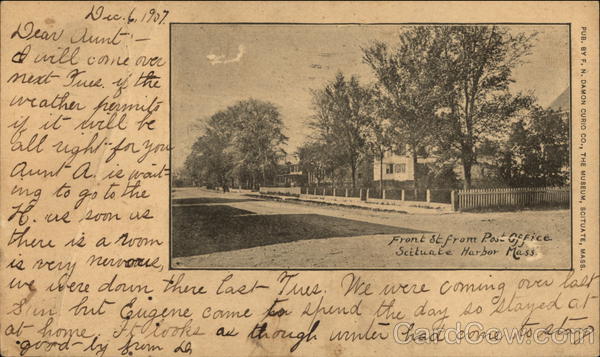 Dec. 6, 1907.
Dear Aunt:-
I will come over
next Tues. if the
weather permits
if it will be
all right for you
Aunt A. is wait-
ing to go to the
H. as soon as
there is a room
is very nervous,
we were down there last Tues. We were coming over last
Sun but Eugene came to spend the day so stayed at
at home. It looks as though winter had come to stay
good-by from D
Front St. from Post Office
Scituate Harbor Mass.
PUB. BY F. N. DAMON CURIO CO., THE MUSEUM, SCITUATE, MASS.
CardCow.com